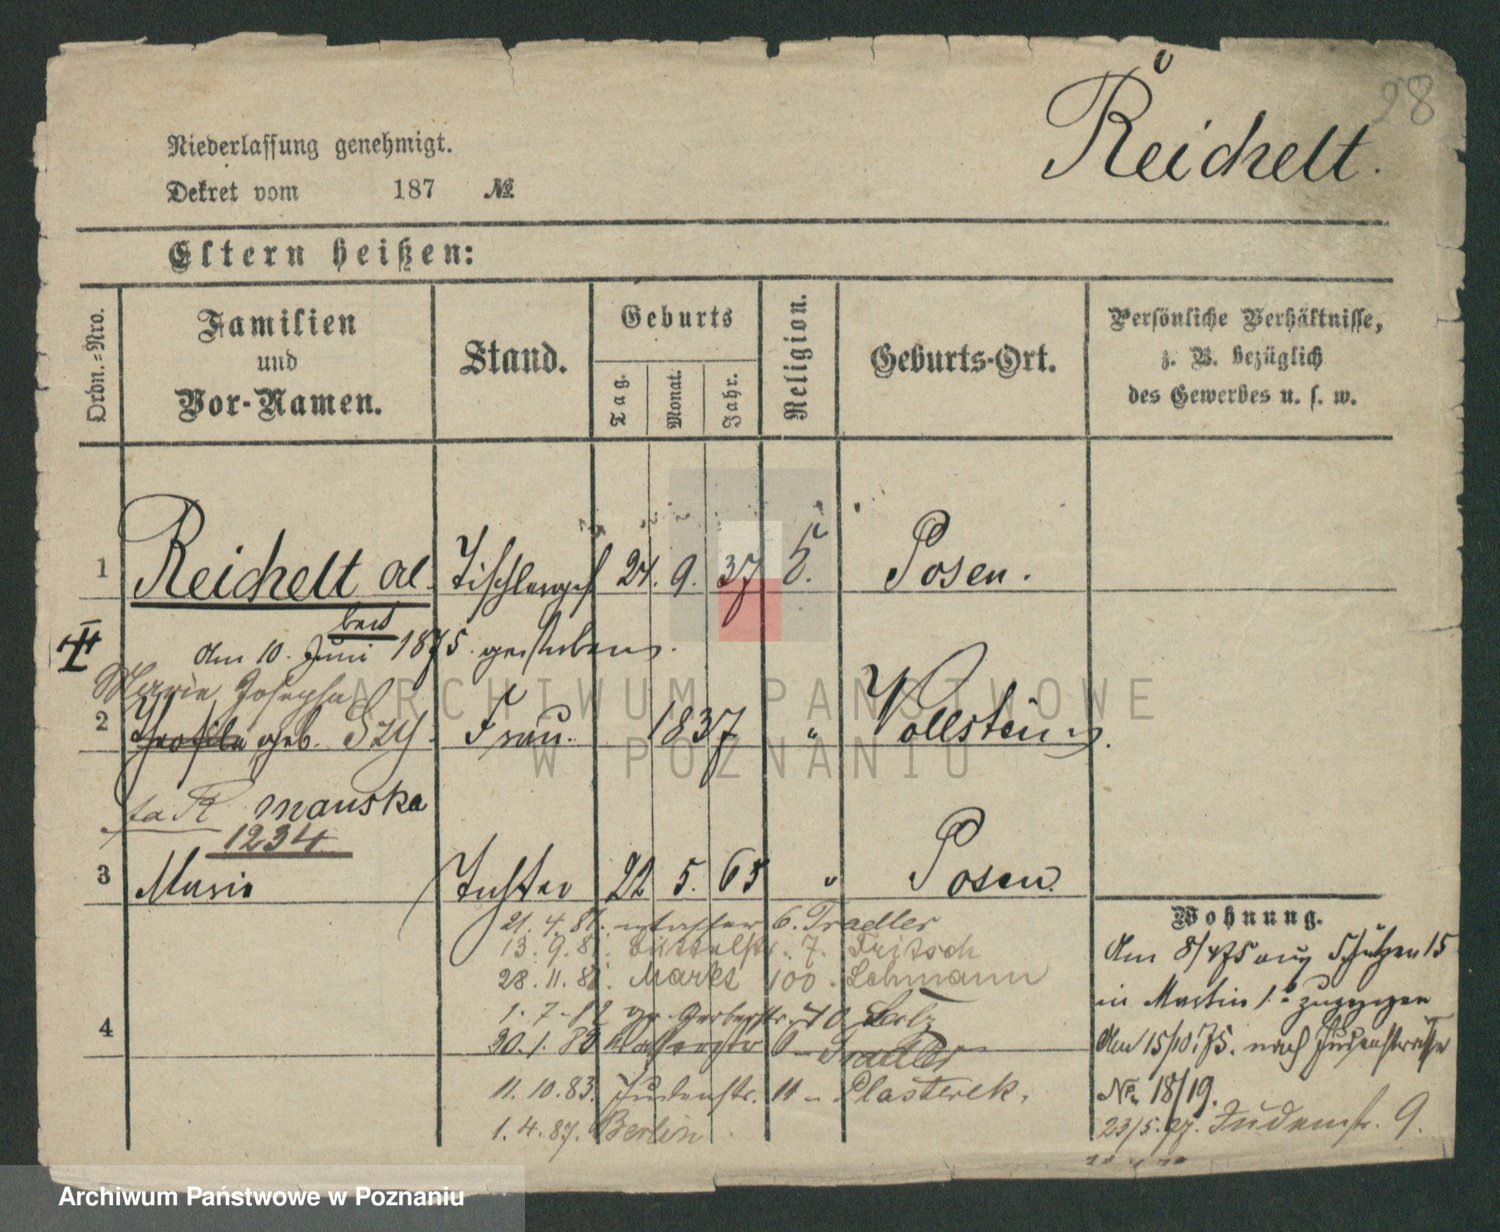 28
Reichelt.
Niederlassung genehmigt.
Dekret vom 187 №
Eltern heißen:
Ordn.=Nro.
Familien
und
Vor-Namen.
Stand.
Geburts
Tag.
Monat.
Jahr.
Religion.
Geburts-Ort.
Persönliche Verhältnisse,
z. B. bezüglich
des Gewerbes u. s. w.
1 Reichelt Al Tischlerges 24. 9. 37 Posen.
bert
Am 10. Juni 1875. gestorben.
Marie Josepha
2 Theofila geb. Szy Frau. 1837 " Wollstein
ta R manska
1234
3 Marie Tochter 22 5. 65 " Posen
21. 4. 81. 6. Tradler
13. 9. 8 7. Fritsch
28. 11. 81. Markt 100. Lehmann
4
1. 7. 82 gr. Gerberstr. 40
30. 1. 83 Wasserstr 6 - Tradler
11. 10. 83. Judenstr. 11 - Plasterek.
1. 4. 87. Berlin
Wohnung.
Am 8/4 75 aus Schützen 15
in Martin 1 zugezogen
Am 15/10. 75. nach Judenstraße
No. 18/19.
23/5. Judenstr. 9.
ARCHIWUM PAŃSTWOWE
W POZNANIU
Archiwum Państwowe w Poznaniu